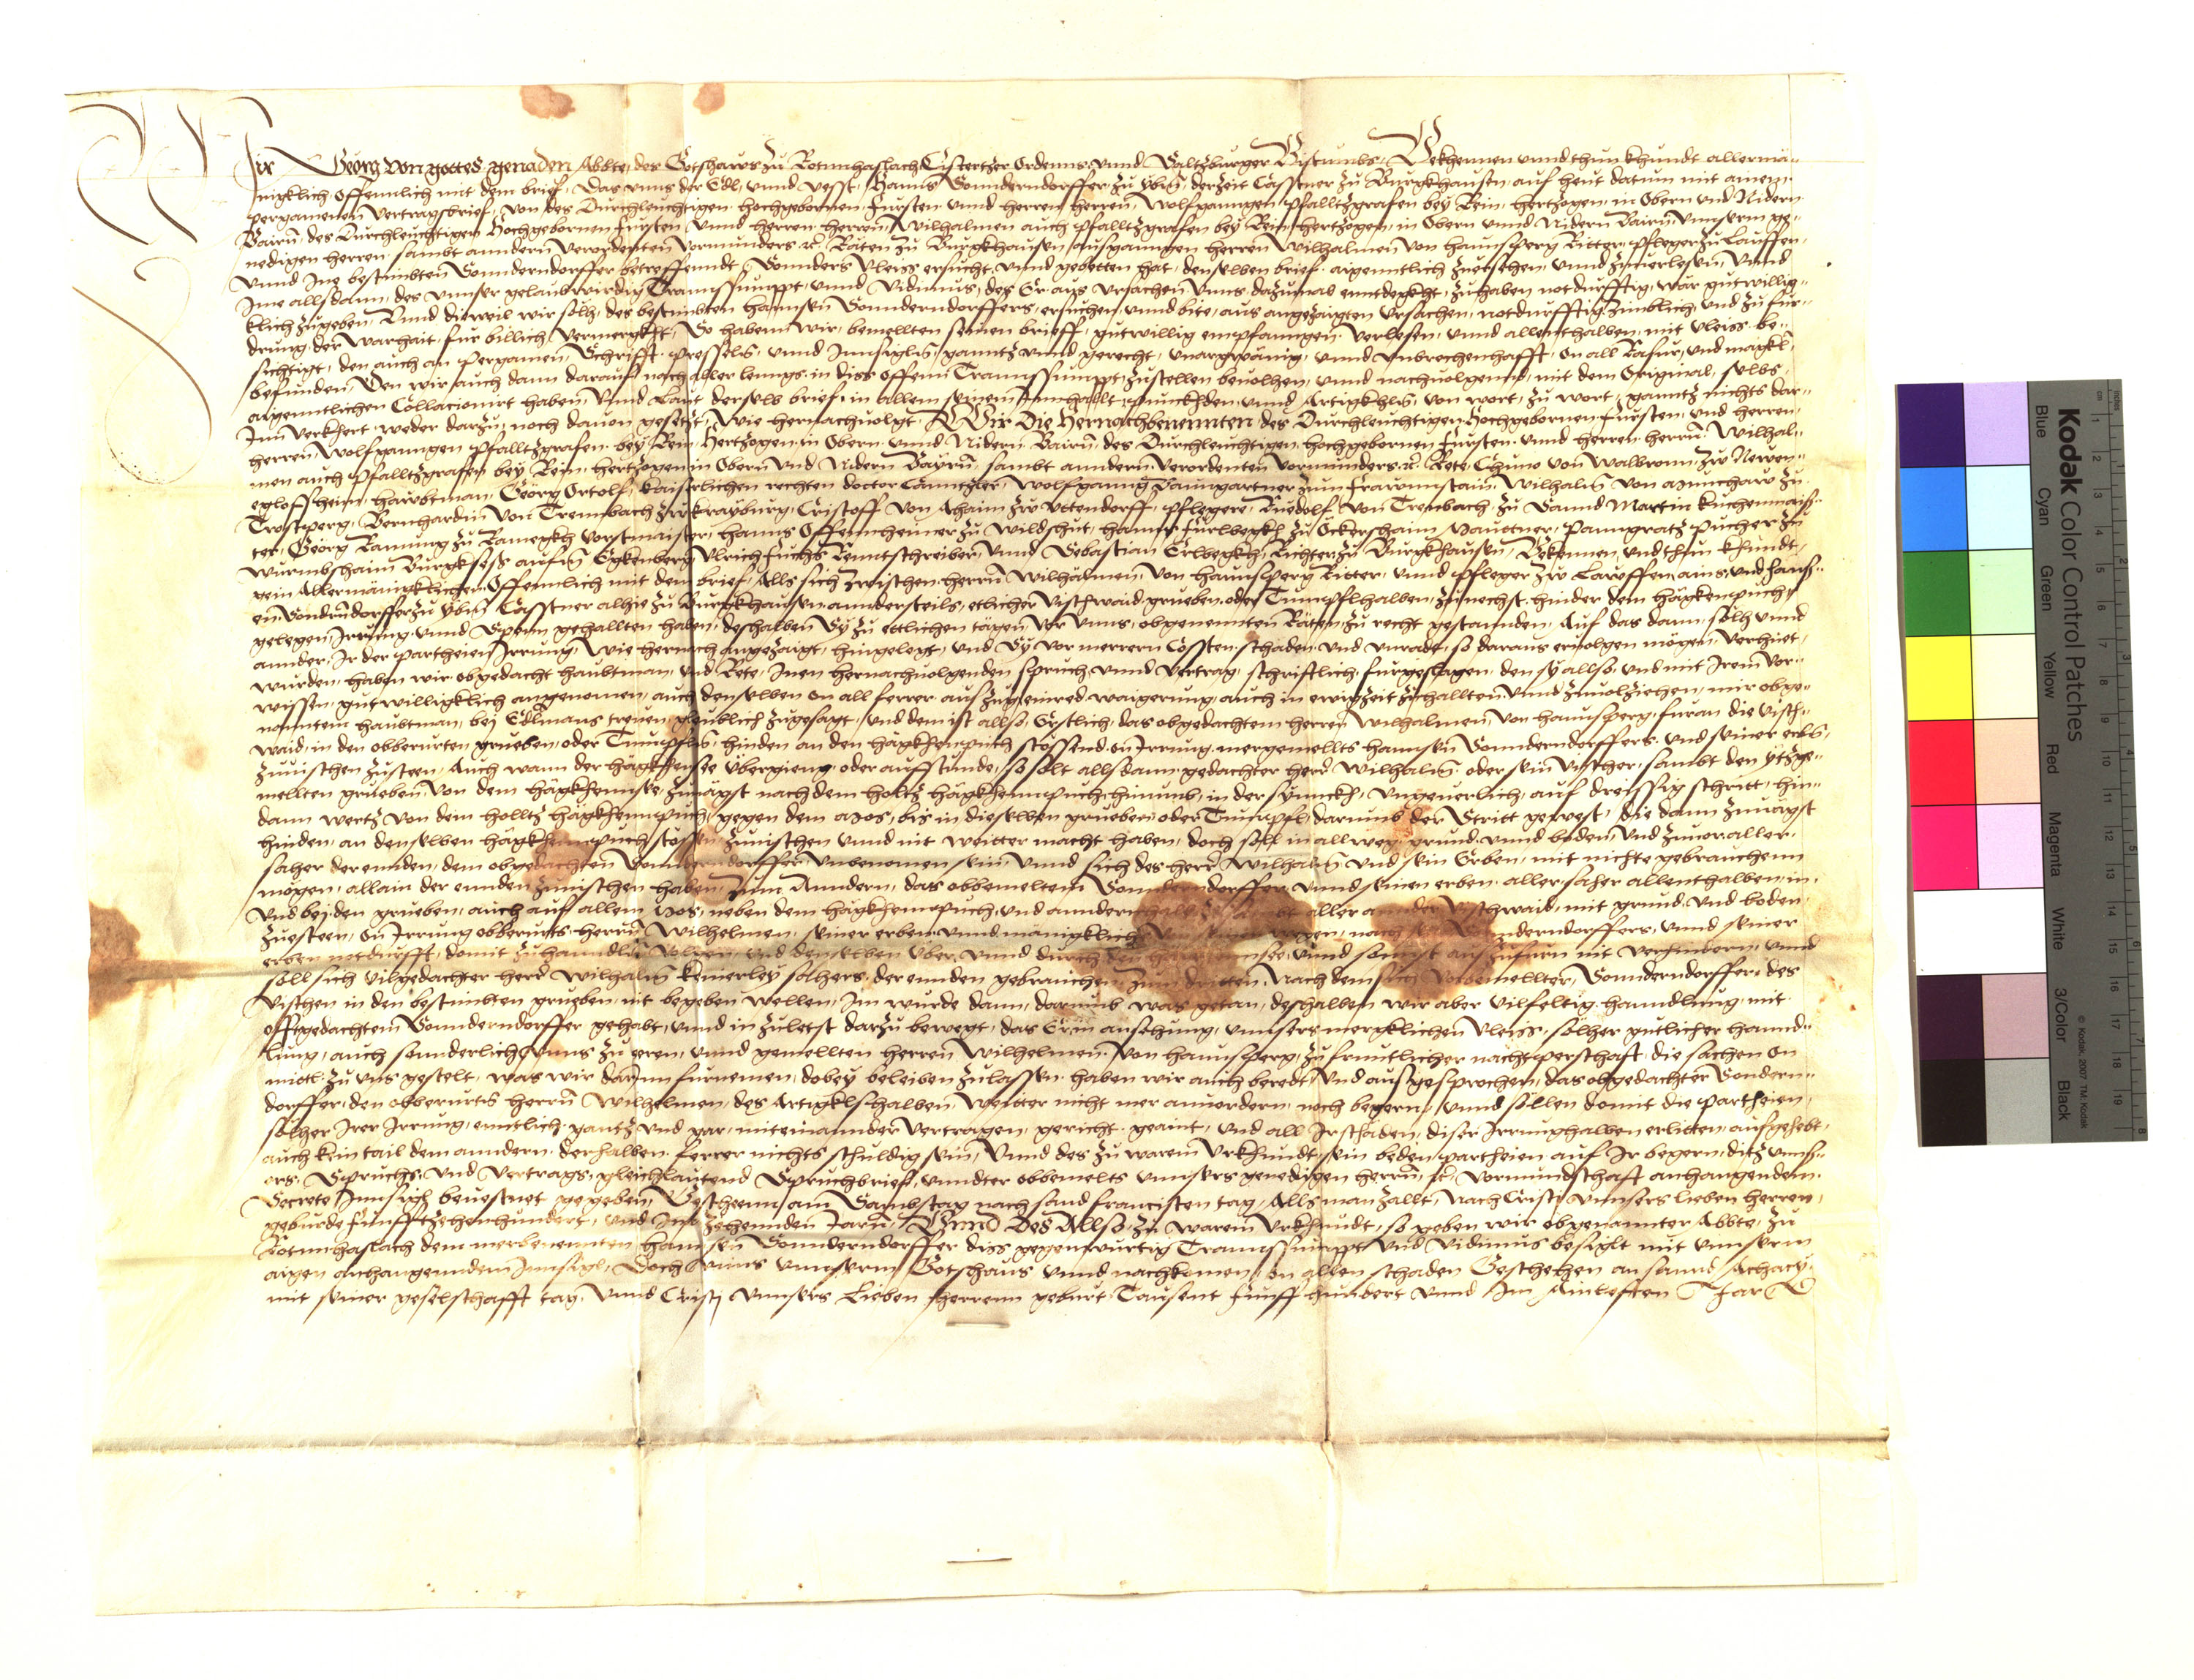 Wir Georg von gottes genaden Abbte des Gotshaws zu Rotnnhaslach Cistertzer Ordenns vnnd Saltzburger Bistumbs, Bekhennen vnnd thun khundt allermä-
nigklich offennlich mit dem brief, Das vnns der Edl vnnd vesst, Hanns Sonnderndorffer zu ybm̃, derzeit Casstner zu Burgkhausen, auf heut datum mit ainen
pergamenen Vertragsbrief, von des Durchleuchtigen hochgebornen Fursten vnnd herren herren, Wolfganngen Pfalltzgrafen bey Rein, hertzogen in Obern vnd Nidern
Bairñ, des Durchleuchtigen Hochgebornen fursten vnnd herren herren, Wilhalmen auch Pfalltzgrafen bey Rein, hertzogen, in Obern vnnd Nidern Bairñ Vnnserm ge-
nedigen herren, sambt anndern verordenten Vormunders ꝛc. Räten zu Burgkhausen, ausganngen herren Wilhalmen von Haunsperg Ritter, Pfleger zu Lauffen,
vnnd Ine bestimbten Sonnderndorffer betreffenndt, Sonnders vleiss ersucht, vnnd gebetten hat, denselben brief aigenntlich zuersehen, vnnd zuuerlesen, vnnd
Ime allsdann, des vnnser gelaubwirdig Trannssumppt, vnnd Vidimus, des Er aus vrsachen vnns dazumab enntdegkht, zuhaben notdurfftig, wär gutwillig-
klich zugeben, Vnnd dieweil wir sölh, des bestimbten hannsen Sonnderndorffers, ersuchen, vnnd bite, aus angezaigten vrsachen, notdurfftig zimblich, vnd zu fur-
drung der warhait, fur billich vermergkht, So habenn wir, bemellten seinen brieff, gutwillig empfanngen, verlesen, vnnd allennthalben, mit vleiss be-
sichtigt, den auch an Pergamen, Schrifft, Presseln, vnnd Innsigln, ganntz vnnd gerecht, vnargwänig, vnnd vnbrechenhafft, on all Rasur, vnd mägkl,
befunden, Den wir auch dann darauf nach aller lenngs in diss offenn Trannssumppt, zustellen beuolhen, vnnd nachuolgennd, mit dem Original, selbs,
aigenntlichen Collacionirt haben, Vnnd laut derselb brief, in allem seinem Innhallt, punckhden, vnnd Artigkhln, von wort, zu wort, ganntz nichts dar-
Inn verkhert, weder darzu, noch dauon gesetzt, wie hernachuolgt, Wir Die Hernachbenennten, des Durchleuchtigen, hochgebornen fursten, vnd herren,
herren, Wolfganngen Pfalltzgrafen, bey Rein, Hertzogen, in Obern, vnnd Nidern, Bairñ, des Durchleuchtigen, hochgebornen fursten, vnnd herren, herrñ, Wilhal-
men auch Pfalltzgrafen bey Rein, hertzogen in Obern vnd Nidern Bayrñ, sambt anndern verordenten vormunders ꝛc. Rete, Chuno von Walbronn, zw Newen-
eglofsheim, haubtman, Georg Ortolf, kaiserlichen rechten doctor Canntzler, Wolfganng Paumgartner zum Frawnnstain, Wilhalm von Münchaw zu
Trostperg, Bernhardin von Trennbach zw krayburg, Cristoff von Ahaim zw vttendorff, Pflegere, Ruedolf von Trenbach zu Sannd Martin kuchenmais-
ter, Georg Ramung zu Ramegkh Vorstmaister, Hanns Offennheimer zu Wildshut, Hanns Fürlbegkh zu Ockershaim Mauttner, Panngratz Pucher zu
Wurmbshaim Burgksess aufm Egkenberg, Vlrich Fuchs Renntschreiber, vnnd Sebastian Erlbegkh, Richter zu Burgkhausen, Bekennen, vnd thun khundt,
gein Allermänigklichen Offennlich mit dem brief, Alls sich zwischen herrñ Wilhalmen, von Haunsperg Ritter, vnnd Pfleger zw Lauffen ains, vnd Hans-
en Sondrñdorffer zu ybm̃, Casstner alhie zu Burgkhausen annderstails, etlicher Vischwaid grueben, oder Tumpflhalben, zunechst, hinder dem hägkenpuch,
gelegen, Irrung, vnnd Spenn gehallten haben, deshalben Sy zu ettlichen tägen, vor vnns, obgenennten Räten, zu recht gestannden, Auf das dann, sölh vnnd
annder, Ir der partheien Irrung, wie hernach angezaigt, hingelegt, vnd Sy vor merrern Cossten, schaden, vnd vnrade, so daraus eruolgen mögen, verhuet,
wurden, haben wir obgedacht haubtman, vnd Rete, Inen hernachuolgenden spruch, vnnd Vertrag, schriftlich, furgeslagen, den sy allso, vnd mit Irem Vor-
wissen, gutwilligklich angenomen, auch denselben on all ferrer auszug, einred, waigerung, auch in ewigzeit zuhallten, vnnd zuuolziehen, mir obge-
nanntem haubtman, bej Edlmans trewen, glaublich zugesagt, vnd dem ist allso, Erstlich, das obgedachtem herren Wilhalmen, von Haunsperg, furan die Visch-
waid, in den obberurten, grueben, oder Tumpfln, hinden an den hägkhenpuch stossend, on Irrung, mergemellts hannsen Sonnderndorffers, vnd seiner erbñ,
zuuischen zusteen, Auch wann der hägkhensee vbergieng, oder aufstunde, so solt allsdann, gedachter herr Wilhalm̃, oder sein vischer, sambt den ytzge-
mellten grueben, von dem hägkhennsee, zunägst nach dem holtz hägkhennpuch, hinumb, in der synnckh, vngeuerlich, auf dreissig schritt, hin-
dann wertz von dem holltz hägkhennpuch, gegen dem Mos, bis in dieselben grueben oder Tumpfl, darumb der Stritt gewest, die dann zunägst
hinden, an denselben hägkhennpuch stossen, zuuischen vnnd nit weitter macht haben, doch soll in allweg, grund, vnnd bodem, vnd zuuor aller
saher der ennden, dem obgedachten Sonnderndorffer, vnbenomen sein, vnnd sich des herr Wilhalm̃, vnd sein Erben, mit nichte gebrauchenn
mögen, allain der ennden zuuischen haben, Zum Anndern, das obbemeltem Sonnderndorffer, vnnd seinen erben, aller saher allennthalben, in,
vnd bej den grueben, auch auf allem Mos, neben dem hägkhennpuch, vnd anndernthalben aller annder Vischwaid, mit grund, vnd boden,
zuesteen, on Irrung obberurts herrñ Wilhelmen, seiner erben, vnnd manigklichs wegen, nach Sonnderndorffers, vnnd seiner
erben notdurfft, domit zuhanndln Volgen, vnd denselben vber, vnnd durch den see, vnnd sonnst auszufurn nit verhindern, vnnd
soll sich vilgedachter herr Wilhalm̃ kainerley sahers, der ennden gebrauchen, Zum dritten, Nachdem sich vorbemellter, Sonnderndorffer, des
Vischen in den bestimbten grueben, nit begeben wellen, Im wurde dann, darumb was getan, deshalben wir aber vilfeltig hanndlung mit
offtgedachtem Sonnderndorffer gehabt, vnnd in zuletst darzu bewegt, das Er in ansehung, vnnsers mergklichen vleiss, sölher gutlicher hannd-
lung, auch sonnderlich vnns zu eeren, vnnd gemellten herren Wilhelmen von Haunsperg, zu frunntlicher nachtperschaft, die sachen on
mitl zu vns gestelt, was wir darinn furnemen, dobey beleiben zulassen, haben wir auch beredt, vnd ausgesprochen, das obgedachter Sondern-
dorffer, den obberurtn herrñ Wilhelmen, des Artigkls halben, weitter nicht mer anuordern, noch begern, vnnd söllen domit die partheien,
sölher Irer Irrung, enntlich gantz vnd gar, miteinannder vertragen, gericht, geaint, vnd all Ir schäden, diser Irrunghalben erlitten, aufgehebt,
auch kein tail dem anndern, derhalben, ferrer nichts schuldig sein, vnnd des zu warem Vrkhundt, sein beden partheien auf Ir begern, ditz vnns-
ers, Spruchs, vnd Vertrags, gleichlautend Spruchbrief, vnndter obbemelts vnnsers genedigen herrñ, ꝛc. Vormundschaft anhangendem
Secrete Innsigl beuestnet gegeben, Gescheenn am Sambstag nach sand Francisten tag, Alls man zallt, Nach Cristi vnnsers lieben herren,
geburde funfftzehenhundert, vnd Im zehennden Jarn, Vnnd Des Allso, zu warem Vrkhundt, so geben wir obgenannter Abbte, zu
Rotnnhaslach dem merbenennten hannsen Sonnderndorffer diss gegenwurtig Trannssumppt vnd Vidimus besiglt mit vnnserm
aigen anhangenndem Innsigl, Doch vnns vnnserm Gotshaus vnnd nachkomen, on allen schaden Geschehen an sannd Achacy
mit seiner geselschafft tag, Vnnd Cristj vnnsers Lieben herrenn geburt Tausent funff hundert vnnd Im Ainlefften Jar
Kodak Color Control Patches
Blue Cyan Green Yellow Red Magenta White 3/Color Black
© Kodak, 2007 TM: Kodak